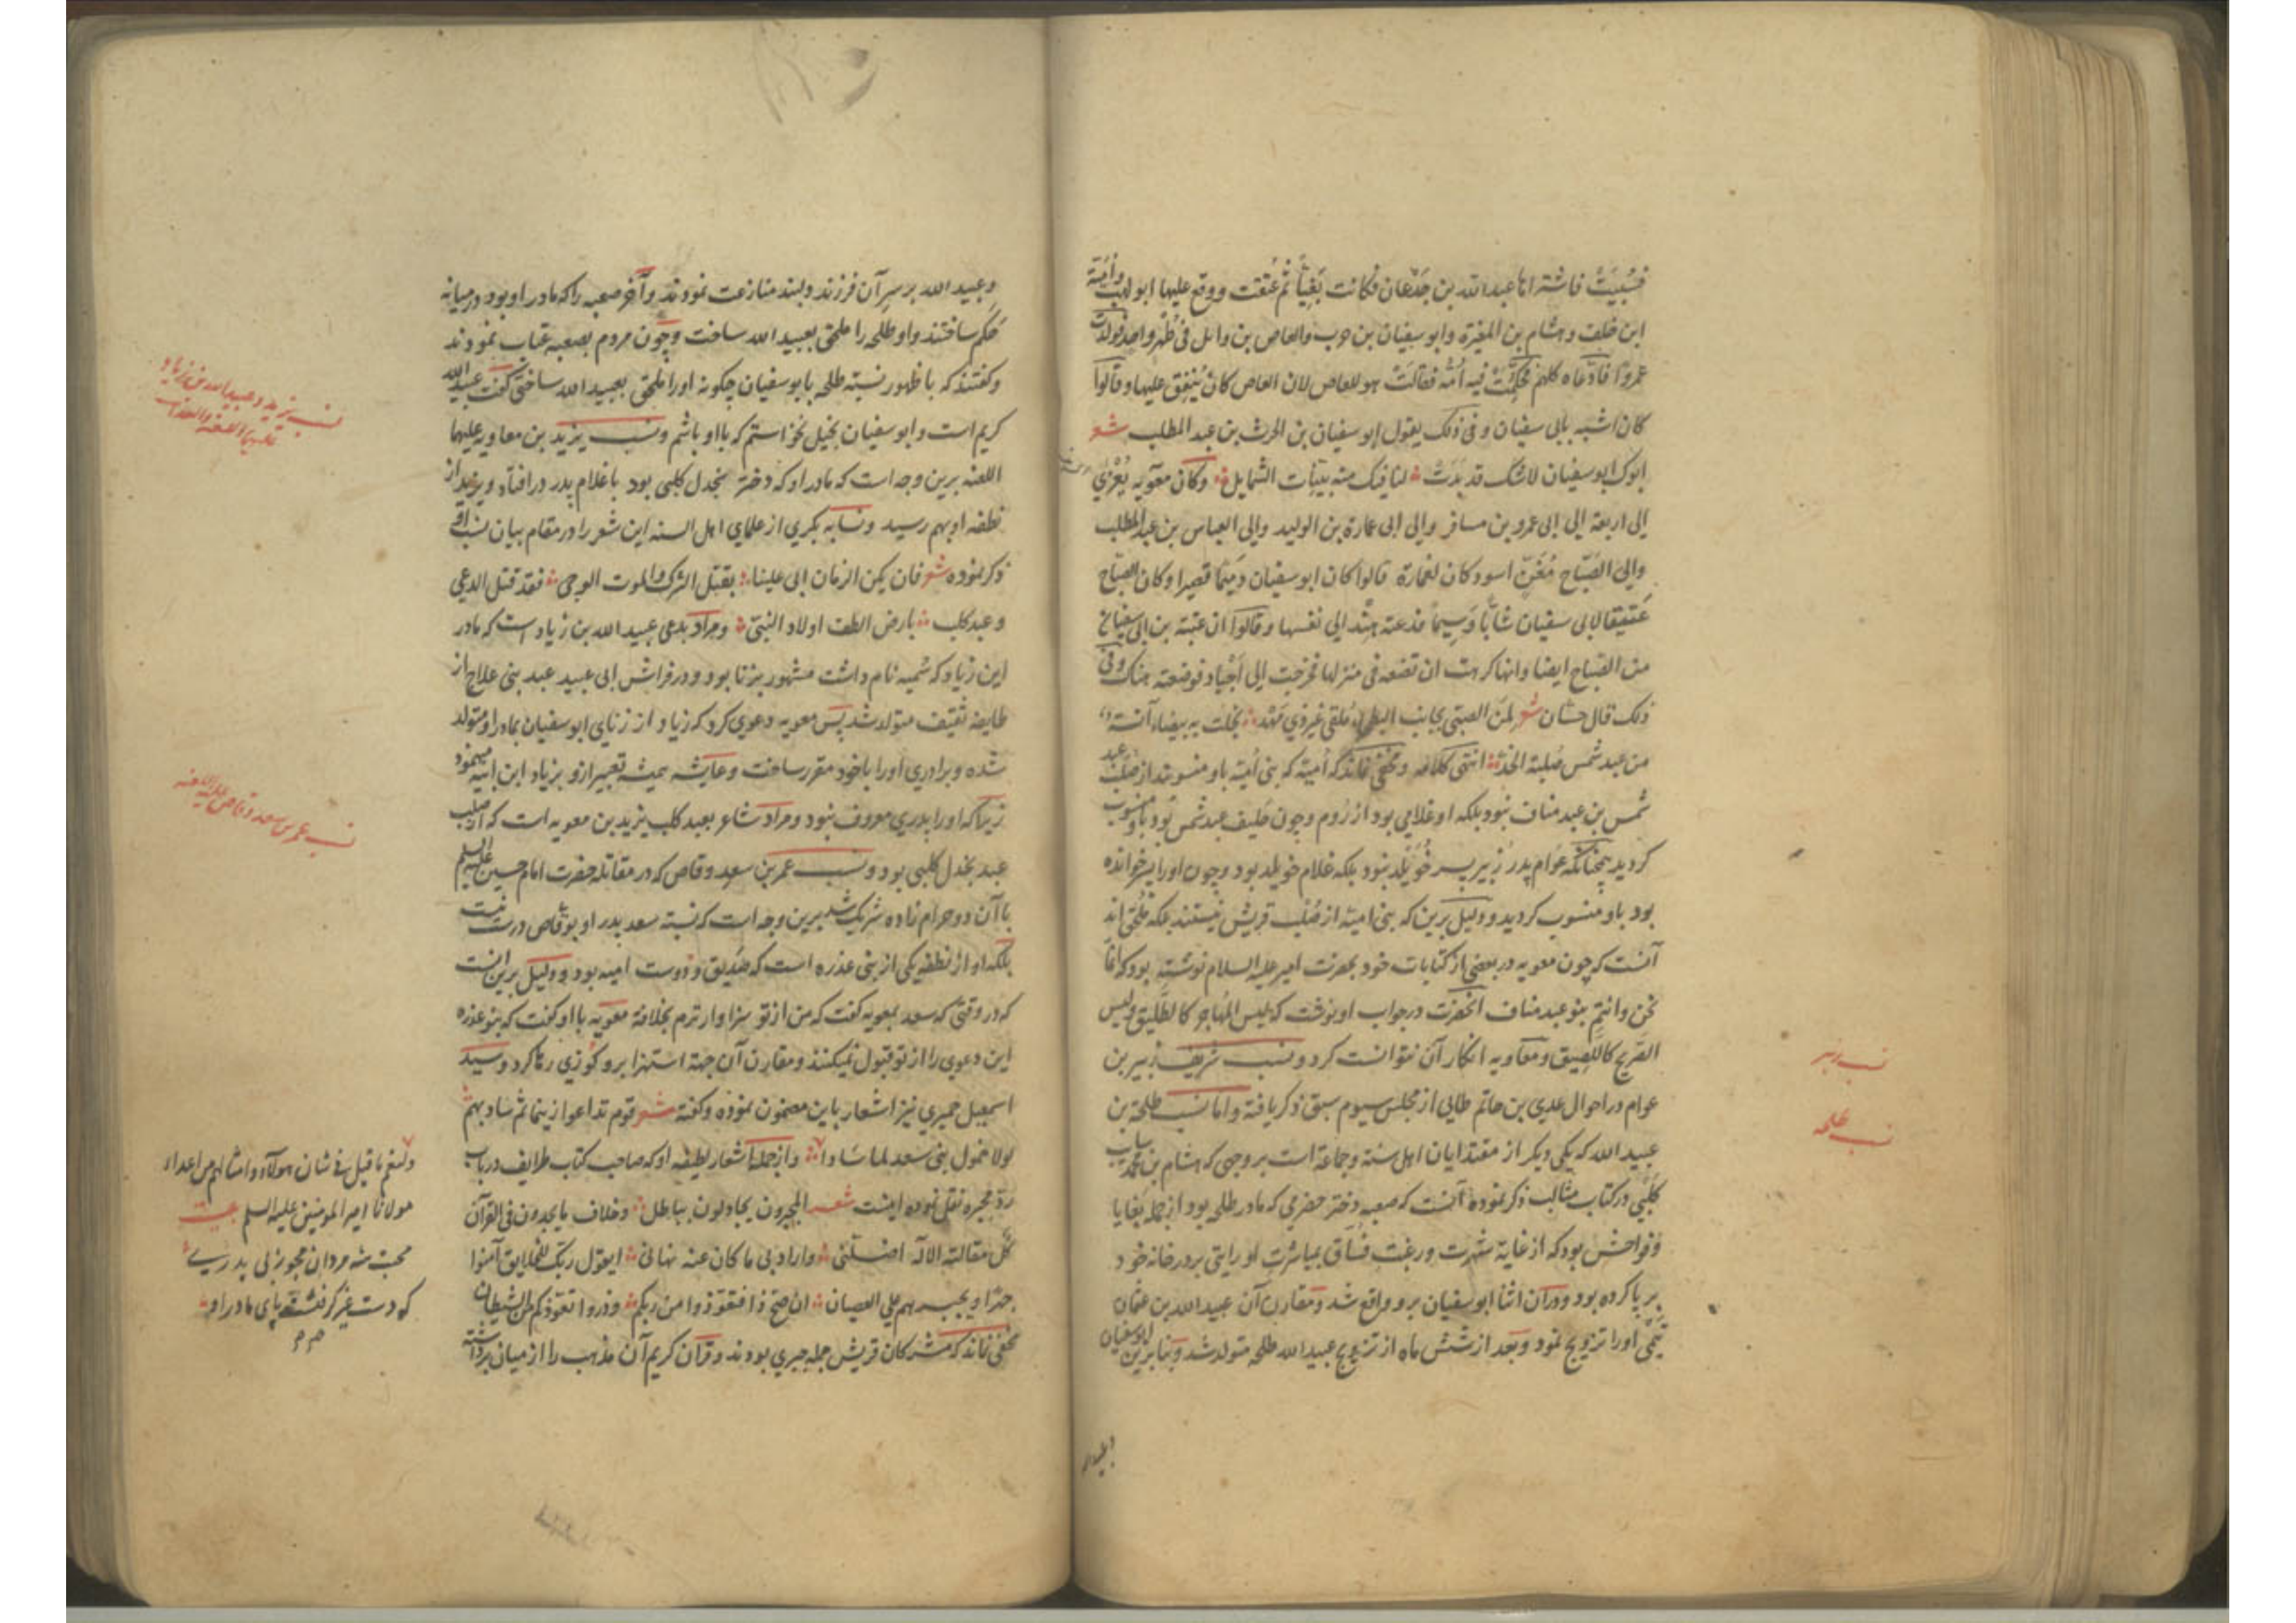 فسُبِيَتْ فاشتراها عبد الله بن جَدْعان فكانت بَغِيّاً ثم عُتقت ووقع عليها ابو لهب واُمَيّة
ابن خلف وهشام بن المغيرة وابو سفيان بن حرب والعاص بن وائل فى طُهر واحد فولدت
عمروا فادّعاه كلهم فحكّمت فيه اُمّه فقالت هو للعاص لان العاص كان يُنفِق عليها وقالوا
كان اشبه بابى سفيان وفى ذلك يقول ابو سفيان بن الحرث بن عبد المطلب شعر
ابوك ابو سفيان لاشك قد بَدَتْ لنا فيك منه بيّنات الشمايل وكان معويه يُعْزي
الى اربعة الى ابى عمرو بن مسافر والى ابى عمارة بن الوليد والى العباس بن عبد المطلب
والى الصَبّاح مُغَنّ اسود كان لعمارة قالوا كان ابو سفيان دَمِيمًا قصيرا وكان الصباح
عَتيقا لابى سفيان شابّا وَسِيماً فدعته هند الى نفسها وقالوا ان عتبة بن ابى سفيان
من الصباح ايضا وانها كرهت ان تضعه فى منزلها فخرجت الى اَجْياد فوضعته هناك وفى
ذلك قال حسّان شعر لمن الصبىّ بجانب البطحا مُلقى غير ذي مَهْد نجلت به بيضاء آنسة
من عبد شمس صُلبة الخدّ انتهى كلامه ومخفى نماند كه اُميّه كه بنى اُميّه باو منسوبند از صُلب عبد
شمس بن عبد مناف نبود بلكه او غلامى بود از رُوم وچون حليف عبد شمس بود باو منسوب
كرديد همچنانكه عوام پدر زبير پسر خُوَيْلِد نبود بلكه غلام خويلد بود وچون اورا پسر خوانده
بود باو منسوب كرديد ودليل برين كه بنى اميّه از صُلب قريش نيستند بلكه مُلحق اند
آنست كه چون معويه در بعضى از كتابات خود بحضرت امير عليه السلام نوشته بود كه انّما
نحن وانتم بنو عبد مناف آنحضرت در جواب او نوشت كه ليس المُهاجر كالطَّليق وليس
الصّريح كاللصيق ومعاويه انكار آن نتوانست كرد ونسب شريف زبير بن
عوام در احوال عدي بن حاتم طائى از مجلس سيوم سبق ذكر يافته واما نسب طلحة بن
عبيد الله كه يكى ديكر از مقتدايان اهل سنة وجماعة است بر وجهى كه هشام بن محمد سايب
كلبى در كتاب مثالب ذكر نموده آنست كه صعبه دختر حضرمى كه مادر طلحه بود از جمله بَغايا
وفواحش بود كه از غاية شهرت ورغبت فُسّاق بمباشرت او رايتى بر در خانه خود
بر پا كرده بود ودر آن اثنا ابو سفيان برو واقع شد ومقارن آن عبيد الله بن عثمان
تيمى اورا تزويج نمود وبعد از شش ماه از تزويج عبيد الله طلحه متولد شد وبنا برين ابو سفيان
نسب زبير
نسب طلحه
وعبيد الله
وعبيد الله بر سر آن فرزند دلبند منازعت نمودند وآخر صعبه را كه مادر او بود در ميانه
حَكم ساختند واو طلحه را ملحق بعبيد الله ساخت وچون مردم بصعبه عتاب نمودند
وكفتند كه با ظهور نسبته طلحه بابو سفيان چكونه اورا ملحق بعبيد الله ساختى كفت عبيد الله
كريم است وابو سفيان بخيل نخواستم كه با او باشم ونسب يزيد بن معاويه عليهما
اللعنه برين وجه است كه مادر او كه دختر بجدل كلبى بود با غلام پدر در افتاد ويزيد از
نطفه او بهم رسيد ونسابه بكري از علماي اهل السنه اين شعر را در مقام بيان نسب او
ذكر نموده شعر فان يكن الزمان اتى علينا بقتل الترك والموت الوحى فقد قتل الدعى
وعبد كلب بارض الطف اولاد النبىّ ومراد بدعى عبيد الله بن زياد است كه مادر
اين زياد كه سُميه نام داشت مشهور بزنا بود ودر فراش ابى عبيد عبد بنى علاج از
طايفه ثقيف متولد شد پس معويه دعوي كرد كه زياد از زناي ابو سفيان بمادر او متولد
شده وبرادري اورا با خود مقرر ساخت وعايشه هميشه تعبير ازو بزياد ابن ابيه مينمود
زيرا كه اورا پدري معروف نبود ومراد شاعر بعبد كلب يزيد بن معويه است كه از صلب
عبد بجدل كلبى بود ونسب عمر بن سعد وقاص كه در مقاتله حضرت امام حسين عليه السلم
با آن دو حرام زاده شريك شد برين وجه است كه نسبته سعد پدر او بوقاص درست نيست
بلكه او از نطفه يكى از بنى عذره است كه صَديق ودوست اميه بود ودليل برين آنست
كه در وقتى كه سعد بمعويه كفت كه من از تو سزاوارترم بخلافة معويه با او كفت كه بنو عذره
اين دعوي را از تو قبول نميكنند ومقارن آن جهة استهزا برو كوزي رها كرد وسيد
اسمعيل حميري نيز اشعار باين مضمون نموده وكفته شعر قوم تداعوا زنيما ثم سادبهم
لولا خمول بنى سعد لما سادا واز جمله اشعار لطيفه او كه صاحب كتاب طرايف در باب
ردّ مجبره نقل نموده اينست شعر المجبرون يجادلون بباطل وخلاف ما يجدون فى القرآن
كلّ مقالته الاله اضلّنى واراد بى ما كان عنه نهانى ايقول ربّك للخلايق آمنوا
جهرًا ويجبرهم على العصيان ان صحّ ذا فتعوّذوا من ربكم وذروا تعوّذكم من الشيطان
مخفى نماند كه مشركان قريش جمله جبري بودند وقرآن كريم آن مذهب را از ميان برداشته
نسب يزيد وعبيد الله بن زياد
عليهما اللعنه والعذاب
نسب عمر بن سعد وقاص عليه اللعنه
ولنعم ما قيل فى شان هولاء وامثالهم من اعداء
مولانا امير المؤمنين عليه السلم بيت
محبت شه مردان مجو ز بى پدري
كه دست غير كرفتست پاى مادر او